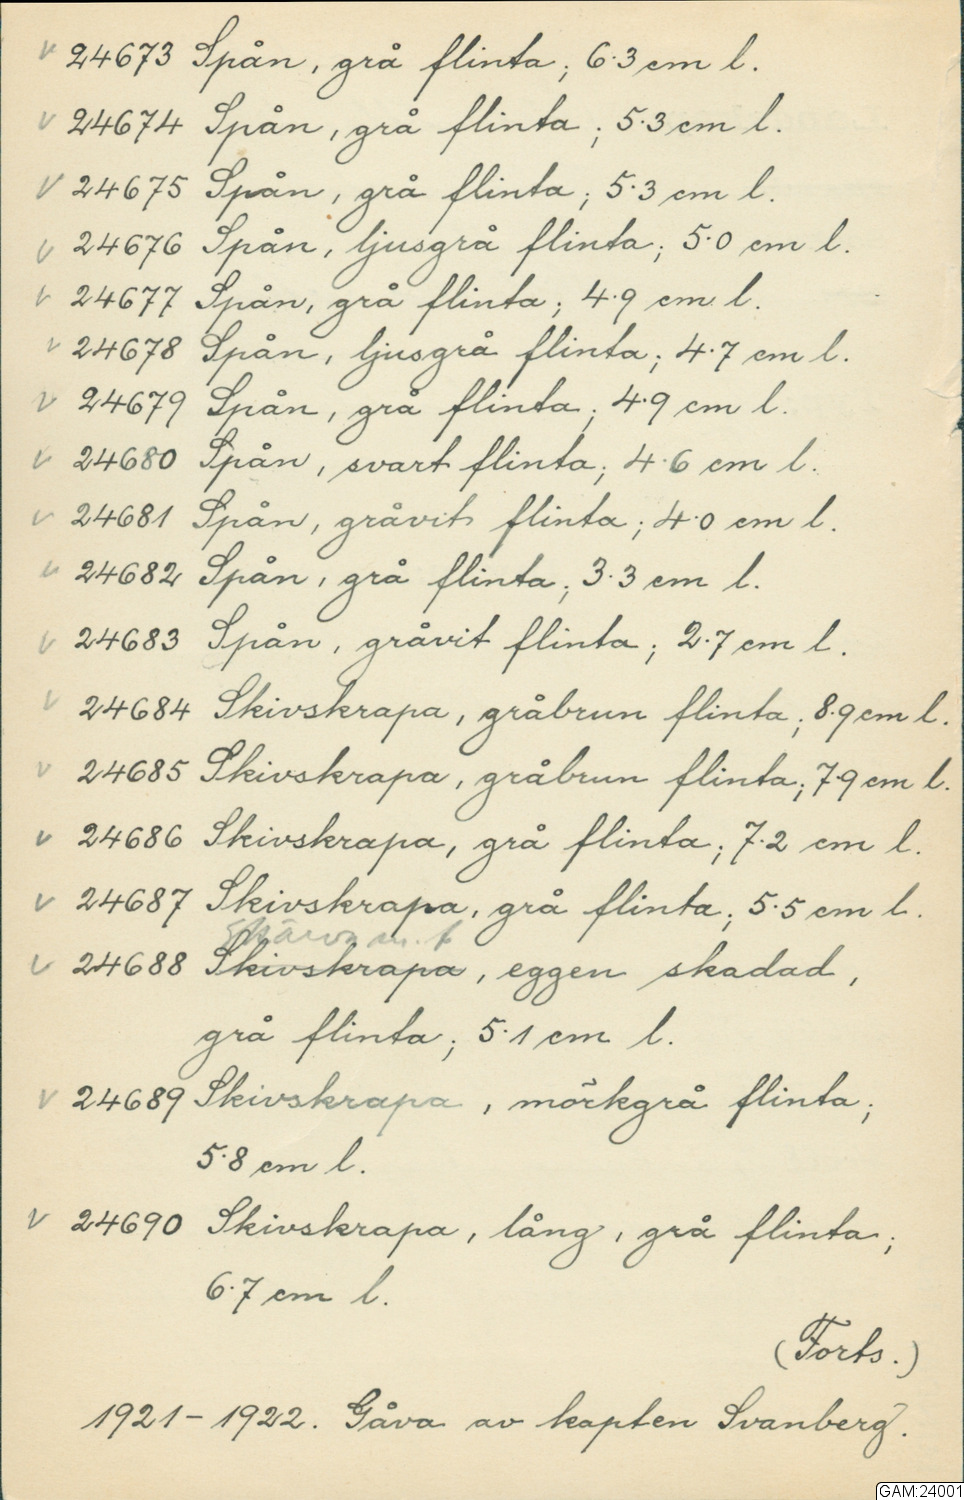 v 24673 Spån, grå flinta; 6·3 cm l.
v 24674 Spån, grå flinta; 5·3 cm l.
v 24675 Spån, grå flinta; 5·3 cm l.
v 24676 Spån, ljusgrå flinta; 5·0 cm l.
v 24677 Spån, grå flinta; 4·9 cm l.
v 24678 Spån, ljusgrå flinta; 4·7 cm l.
v 24679 Spån, grå flinta; 4·9 cm l.
v 24680 Spån, svart flinta; 4·6 cm l.
v 24681 Spån, gråvit flinta; 4·0 cm l.
v 24682 Spån, grå flinta; 3·3 cm l.
v 24683 Spån, gråvit flinta; 2·7 cm l.
v 24684 Skivskrapa, gråbrun flinta; 8·9 cm l.
v 24685 Skivskrapa, gråbrun flinta; 7·9 cm l.
v 24686 Skivskrapa, grå flinta; 7·2 cm l.
v 24687 Skivskrapa, grå flinta; 5·5 cm l.
v 24688 Skivskrapa, eggen skadad,
grå flinta; 5·1 cm l.
v 24689 Skivskrapa, mörkgrå flinta;
5·8 cm l.
v 24690 Skivskrapa, lång, grå flinta;
6·7 cm l.
(Forts.)
1921-1922. Gåva av kapten Svanberg.
GAM:24001